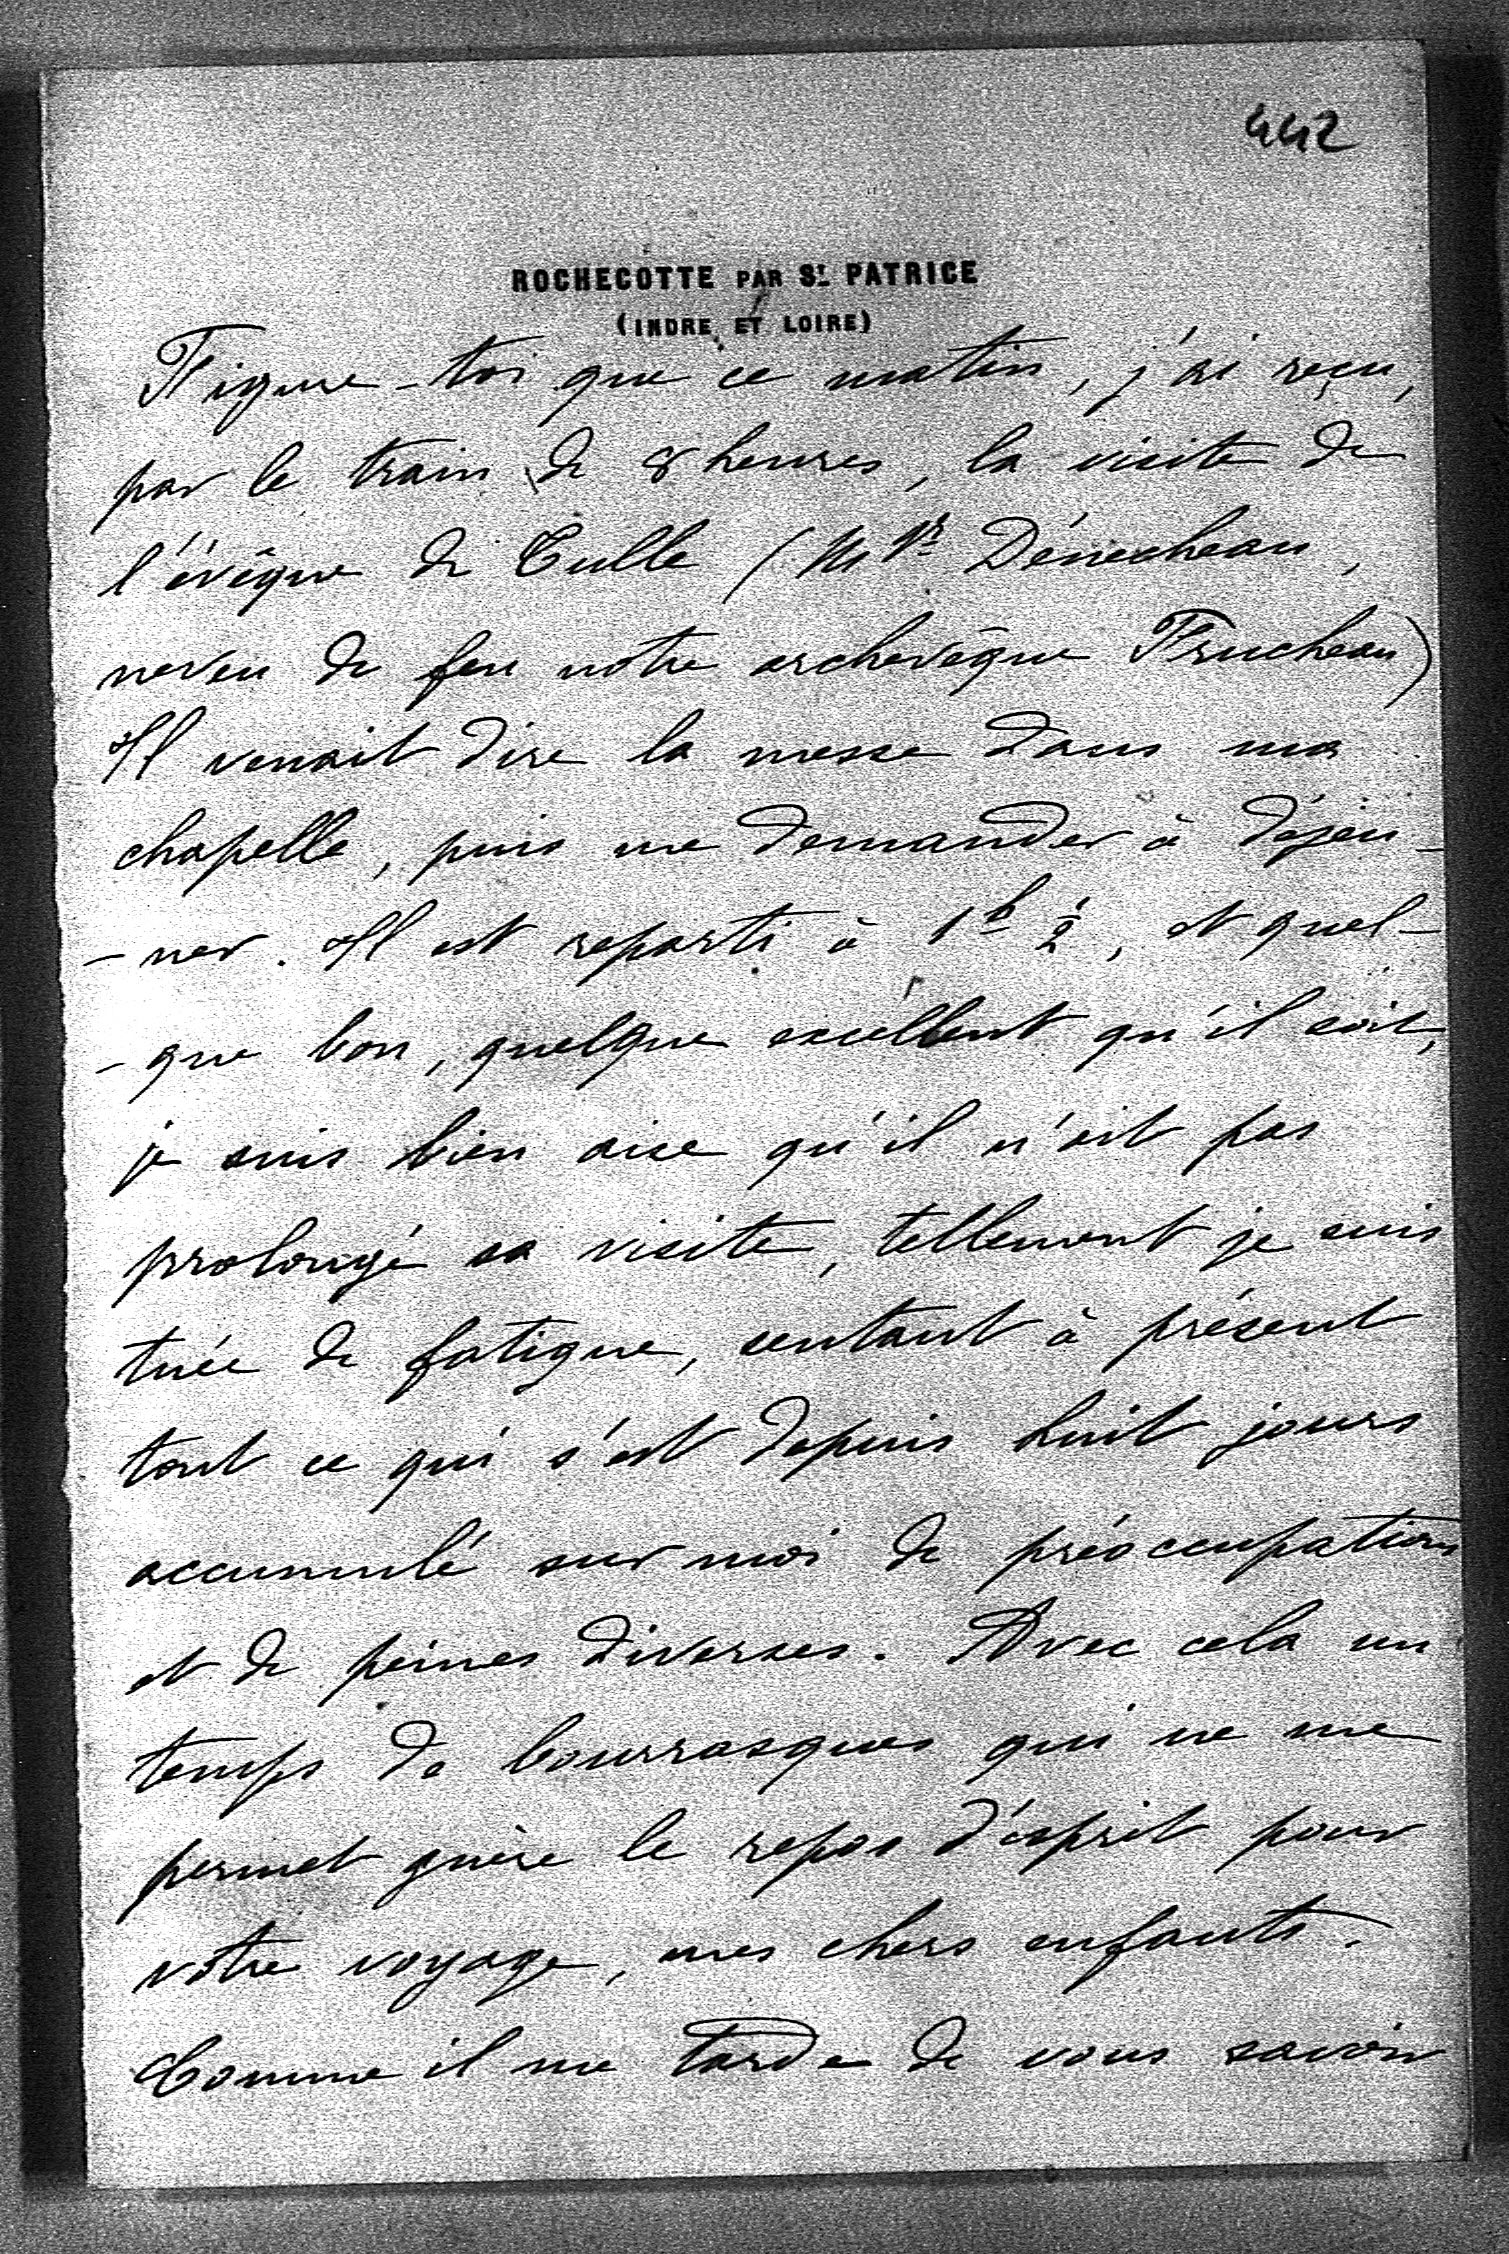 442
ROCHECOTTE PAR ST. PATRICE
(INDRE ET LOIRE)
Figure-toi que ce matin, j'ai reçu,
par le train de 8 heures, la visite de
l'évêque de Tulle (Mgr Dénéchean,
neveu de feu notre archevêque Frucheau)
Il venait dire la messe dans ma
chapelle, puis me demander à déjeu-
-ner. Il est reparti à 1h ½, et quel-
-que bon, quelque excellent qu'il soit,
je suis bien aise qu'il n'ait pas
prolongé sa visite, tellement je suis
tuée de fatigue, sentant à présent
tout ce qui s'est depuis huit jours
accumulé sur moi de préoccupations
et de peines diverses. Avec cela un
temps de bourrasques qui ne me
permet guère le repos d'esprit pour
votre voyage, mes chers enfants.
Comme il me tarde de vous savoir